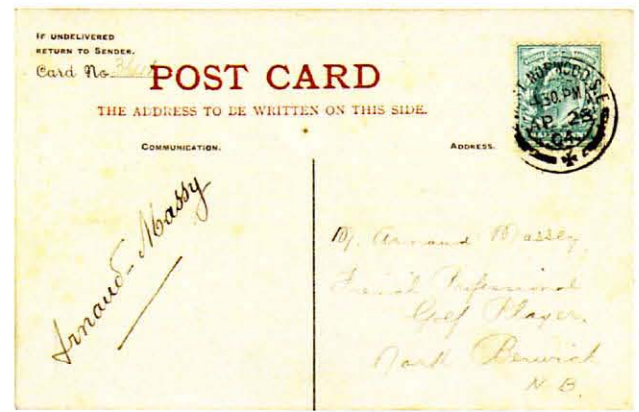 IF UNDELIVERED
RETURN TO SENDER.
Card No.
POST CARD
THE ADDRESS TO BE WRITTEN ON THIS SIDE.
COMMUNICATION.
ADDRESS.
NORWOOD S.E.
4.30.PM
AP 28
04
Arnaud-Massy
M. Arnaud Massey
French Professional
Golf Player.
North Berwick
N.B.